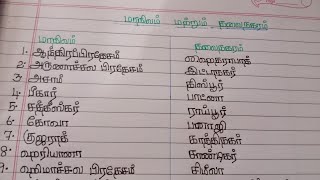 மாநிலம் மற்றும் தலைநகரம்
மாநிலம் தலைநகரம்
1. ஆந்திரப்பிரதேசம் ஹைதராபாத்
2. அருணாச்சல பிரதேசம் இட்டாநகர்
3. அசாம் திஸ்பூர்
4. பீகார் பாட்னா
5. சத்தீஸ்கர் ராய்பூர்
6. கோவா பனாஜி
7. குஜராத் காந்திநகர்
8. ஹரியானா சண்டிகர்
9. ஹிமாச்சல பிரதேசம் சிம்லா